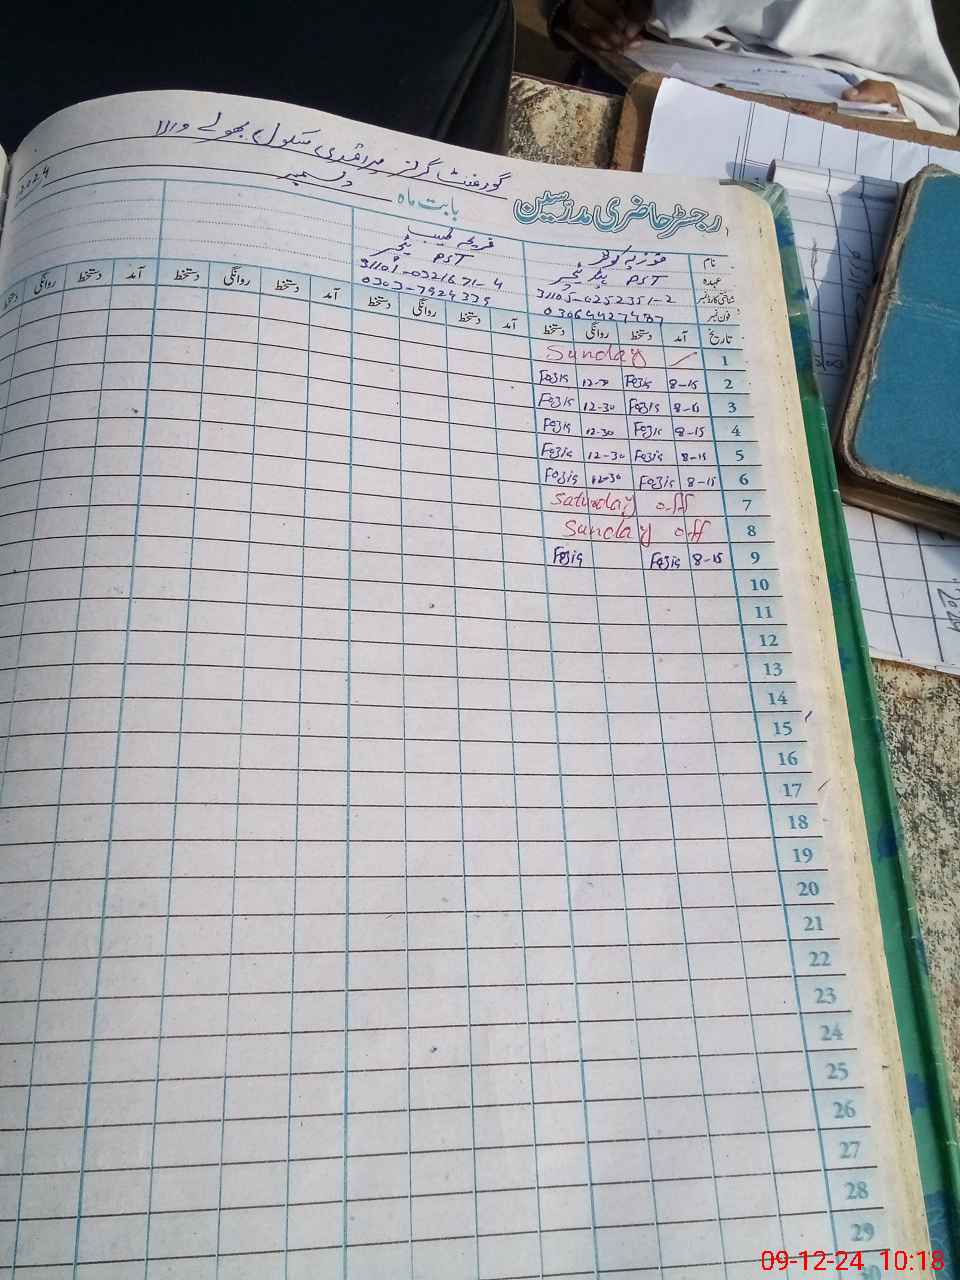 گورنمنٹ گرلز پرائمری سکول بھولے والا
رجسٹر حاضری مدرسین بابت ماہ دسمبر 2024
نام فوزیہ کوثر فریحہ طیب
عہدہ ہیڈ ٹیچر PST ٹیچر PST
شناختی کارڈ نمبر 31105-0252351-2 31101-0321671-4
فون نمبر 03064427487 0303-7924335
تاریخ آمد دستخط روانگی دستخط آمد دستخط روانگی دستخط آمد دستخط روانگی دستخط آمد دستخط روانگی دستخط
1 Sunday
2 8-15 Fozia 12-30 Fozia
3 8-15 Fozia 12-30 Fozia
4 8-15 Fozia 12-30 Fozia
5 8-15 Fozia 12-30 Fozia
6 8-15 Fozia 12-30 Fozia
7 Saturday off
8 Sunday off
9 8-15 Fozia Fozia
10
11
12
13
14
15
16
17
18
19
20
21
22
23
24
25
26
27
28
29
30
2024
09-12-24 10:18